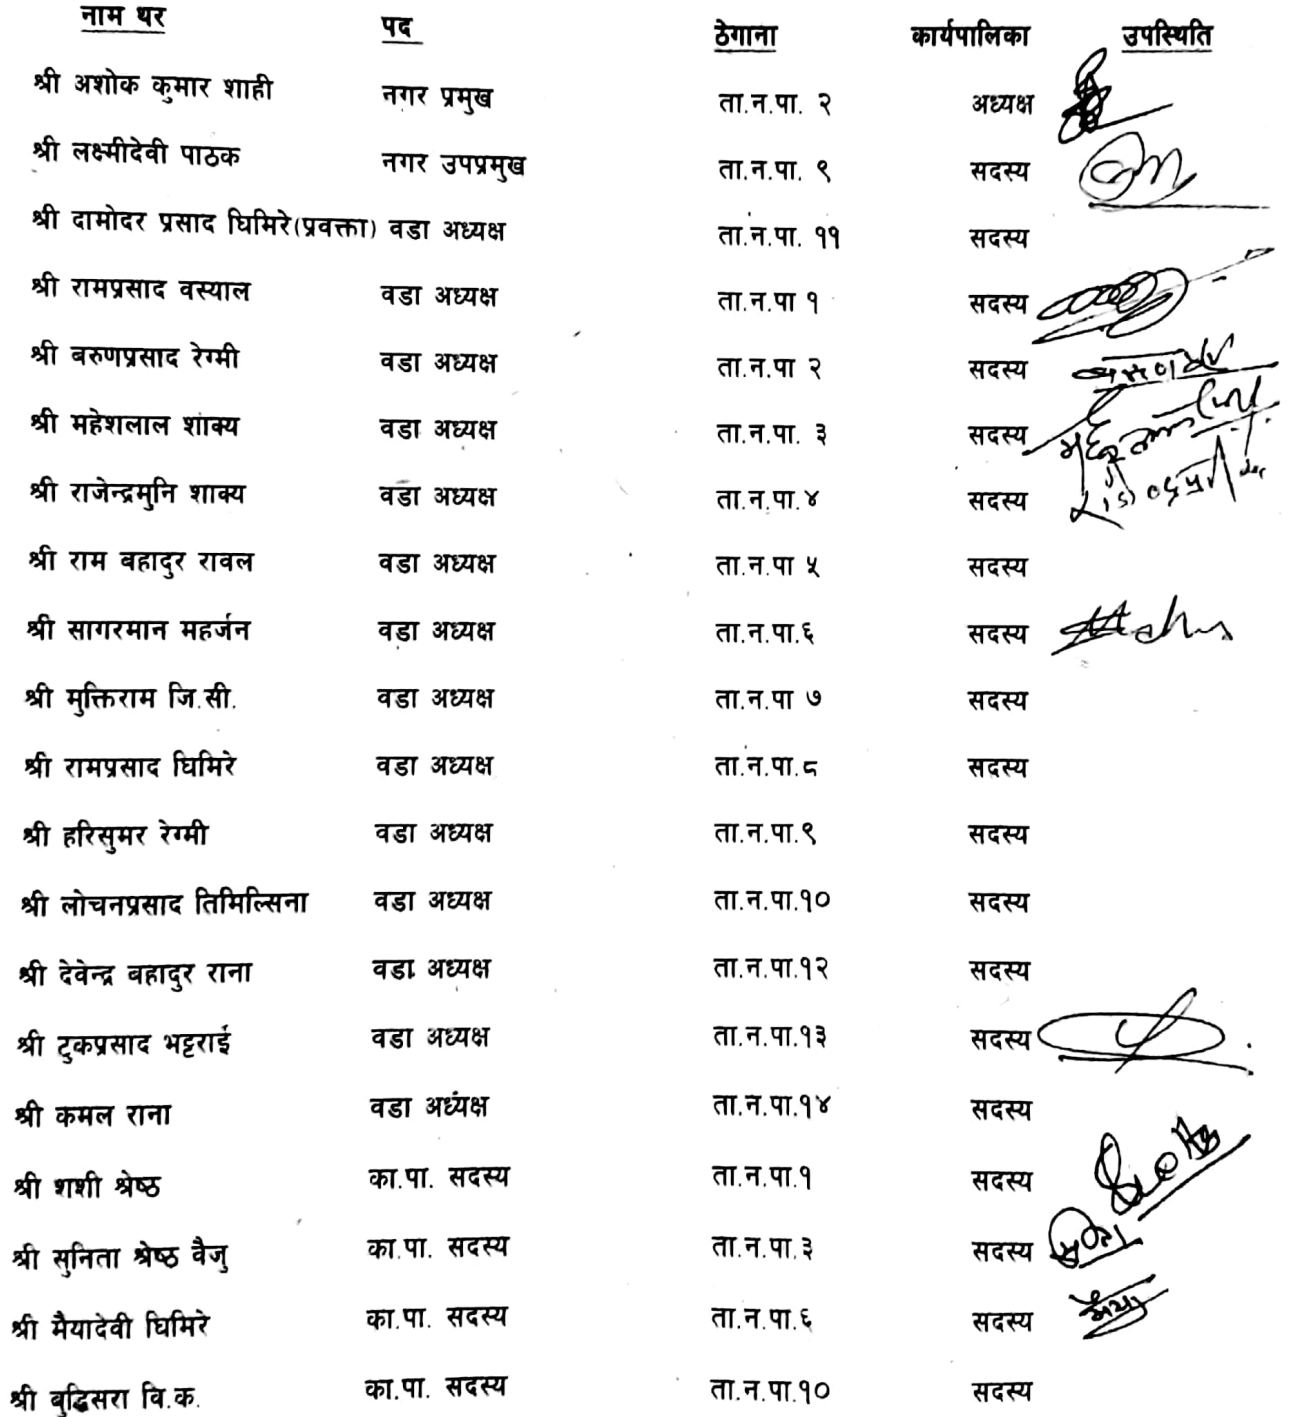 नाम थर पद ठेगाना कार्यपालिका उपस्थिति
श्री अशोक कुमार शाही नगर प्रमुख ता.न.पा. २ अध्यक्ष
श्री लक्ष्मीदेवी पाठक नगर उपप्रमुख ता.न.पा. ९ सदस्य
श्री दामोदर प्रसाद घिमिरे(प्रवक्ता) वडा अध्यक्ष ता.न.पा. ११ सदस्य
श्री रामप्रसाद वस्याल वडा अध्यक्ष ता.न.पा १ सदस्य
श्री बरुणप्रसाद रेग्मी वडा अध्यक्ष ता.न.पा २ सदस्य
श्री महेशलाल शाक्य वडा अध्यक्ष ता.न.पा. ३ सदस्य
श्री राजेन्द्रमुनि शाक्य वडा अध्यक्ष ता.न.पा.४ सदस्य
श्री राम बहादुर रावल वडा अध्यक्ष ता.न.पा ५ सदस्य
श्री सागरमान महर्जन वडा अध्यक्ष ता.न.पा.६ सदस्य
श्री मुक्तिराम जि.सी. वडा अध्यक्ष ता.न.पा ७ सदस्य
श्री रामप्रसाद घिमिरे वडा अध्यक्ष ता.न.पा.८ सदस्य
श्री हरिसुमर रेग्मी वडा अध्यक्ष ता.न.पा.९ सदस्य
श्री लोचनप्रसाद तिमिल्सिना वडा अध्यक्ष ता.न.पा.१० सदस्य
श्री देवेन्द्र बहादुर राना वडा अध्यक्ष ता.न.पा.१२ सदस्य
श्री टुकप्रसाद भट्टराई वडा अध्यक्ष ता.न.पा.१३ सदस्य
श्री कमल राना वडा अध्यक्ष ता.न.पा.१४ सदस्य
श्री शशी श्रेष्ठ का.पा. सदस्य ता.न.पा.१ सदस्य
श्री सुनिता श्रेष्ठ वैजु का.पा. सदस्य ता.न.पा.३ सदस्य
श्री मैयादेवी घिमिरे का.पा. सदस्य ता.न.पा.६ सदस्य मैया
श्री बुद्धिसरा वि.क. का.पा. सदस्य ता.न.पा.१० सदस्य